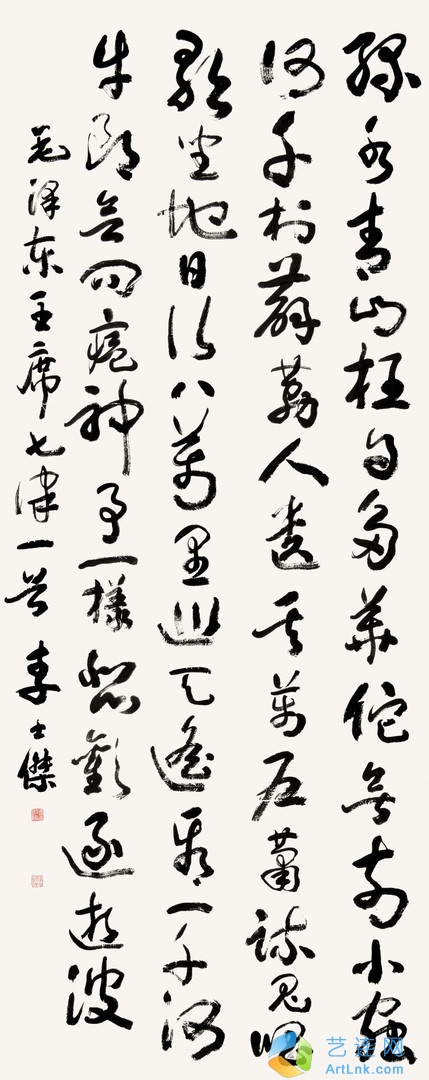 綠水青山枉自多華佗無奈小蟲
何千村薜荔人遺矢萬戶蕭疏鬼唱
歌坐地日行八萬里巡天遙看一千河
牛郎欲問瘟神事一樣悲歡逐逝波
毛泽东主席七律一首 李士傑
艺连网
ArtLnk.com